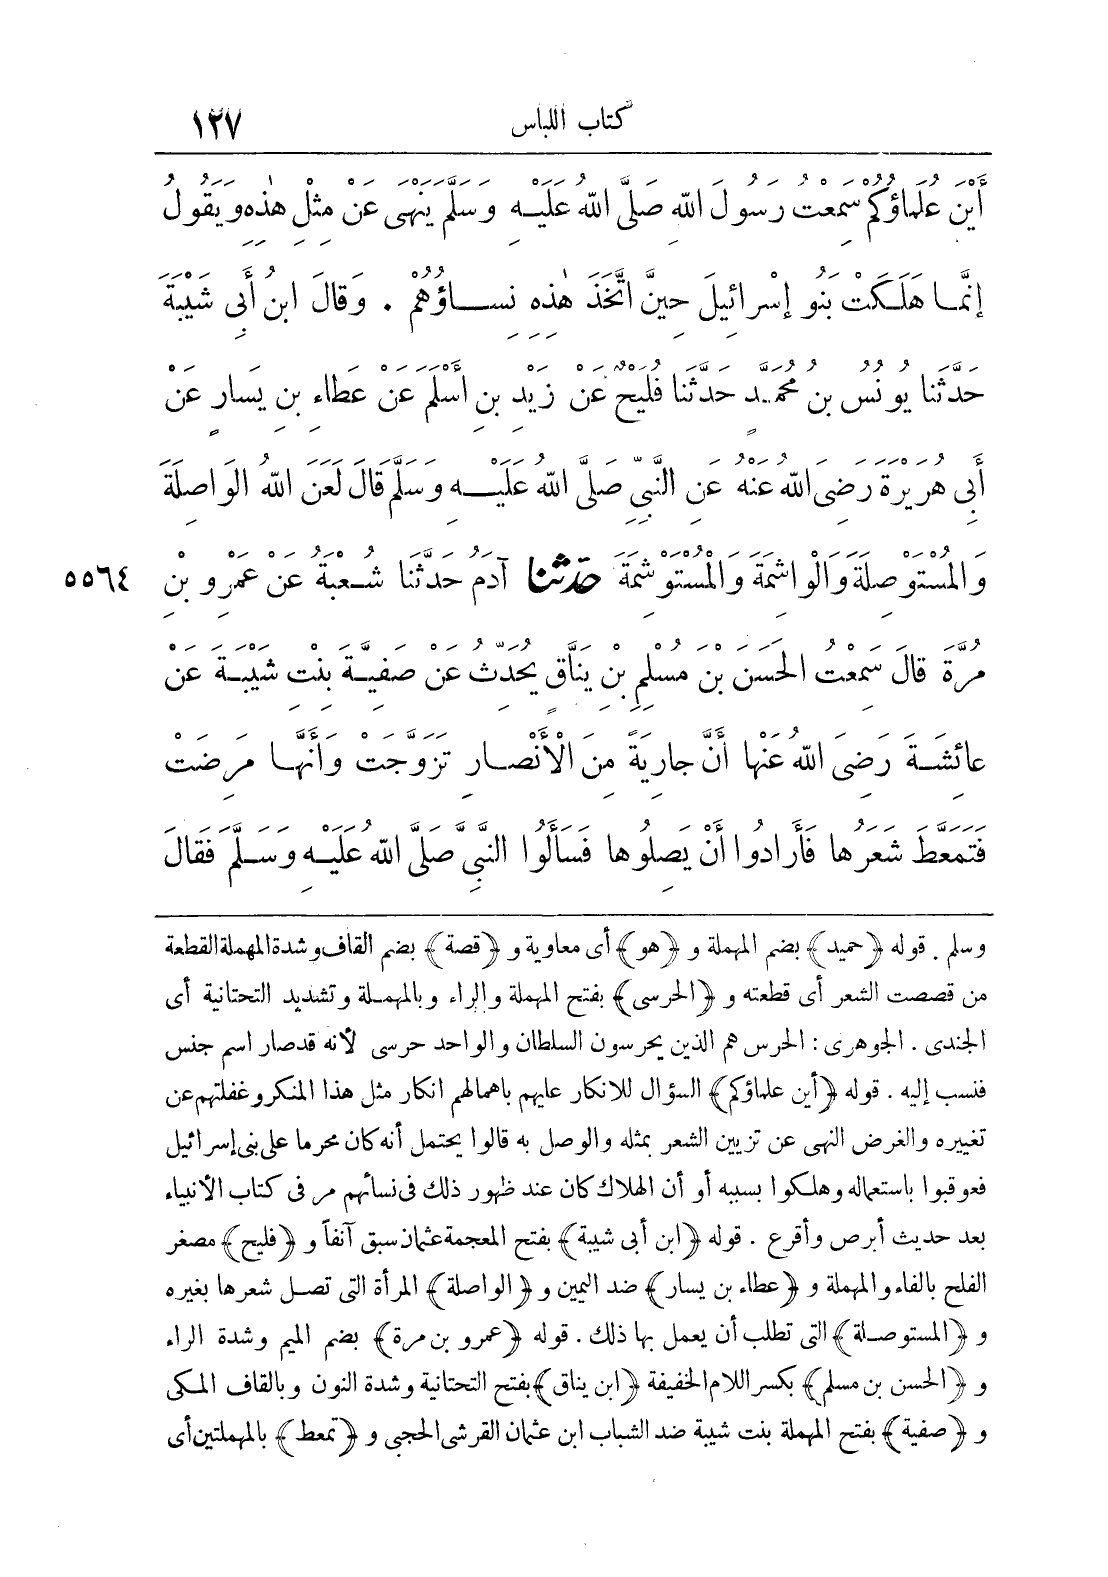 كتاب اللباس ١٢٧
أَيْنَ عُلَمَاؤُكُمْ سَمِعْتُ رَسُولَ اللهِ صَلَّى اللهُ عَلَيْهِ وَسَلَّمَ يَنْهَى عَنْ مِثْلِ هٰذِهِ وَيَقُولُ
إِنَّمَا هَلَكَتْ بَنُو إِسْرَائِيلَ حِينَ اتَّخَذَ هٰذِهِ نِسَاؤُهُمْ . وَقَالَ ابنُ أَبِى شَيْبَةَ
حَدَّثَنَا يُونُسُ بنُ مُحَمَّدٍ حَدَّثَنَا فُلَيْحٌ عَنْ زَيْدِ بنِ أَسْلَمَ عَنْ عَطَاءِ بنِ يَسَارٍ عَنْ
أَبِى هُرَيْرَةَ رَضِىَ اللهُ عَنْهُ عَنِ النَّبِىِّ صَلَّى اللهُ عَلَيْهِ وَسَلَّمَ قَالَ لَعَنَ اللهُ الوَاصِلَةَ
وَالمُسْتَوْصِلَةَ وَالوَاشِمَةَ وَالمُسْتَوْشِمَةَ حَدَّثَنَا آدَمُ حَدَّثَنَا شُعْبَةُ عَنْ عَمْرِو بْنِ ٥٥٦٤
مُرَّةَ قَالَ سَمِعْتُ الحَسَنَ بْنَ مُسْلِمِ بْنِ يَنَّاقٍ يُحَدِّثُ عَنْ صَفِيَّةَ بِنْتِ شَيْبَةَ عَنْ
عَائِشَةَ رَضِىَ اللهُ عَنْهَا أَنَّ جَارِيَةً مِنَ الْأَنْصَارِ تَزَوَّجَتْ وَأَنَّهَا مَرِضَتْ
فَتَمَعَّطَ شَعَرُهَا فَأَرَادُوا أَنْ يَصِلُوهَا فَسَأَلُوا النَّبِىَّ صَلَّى اللهُ عَلَيْهِ وَسَلَّمَ فَقَالَ
وسلم . قوله ﴿حميد﴾ بضم المهملة و ﴿هو﴾ أى معاوية و ﴿قصة﴾ بضم القاف وشدة المهملة القطعة
من قصصت الشعر أى قطعته و ﴿الحرسى﴾ بفتح المهملة والراء وبالمهملة وتشديد التحتانية أى
الجندى . الجوهرى : الحرس هم الذين يحرسون السلطان والواحد حرسى لأنه قد صار اسم جنس
فنسب إليه . قوله ﴿أين علماؤكم﴾ السؤال للانكار عليهم باهمالهم انكار مثل هذا المنكر وغفلتهم عن
تغييره والغرض النهى عن تزيين الشعر بمثله والوصل به قالوا يحتمل أنه كان محرما على بنى إسرائيل
فعوقبوا باستعماله وهلكوا بسببه أو أن الهلاك كان عند ظهور ذلك فى نسائهم مر فى كتاب الأنبياء
بعد حديث أبرص وأقرع . قوله ﴿ابن أبى شيبة﴾ بفتح المعجمة عثمان سبق آنفاً و ﴿فليح﴾ مصغر
الفلح بالفاء والمهملة و ﴿عطاء بن يسار﴾ ضد اليمين و ﴿الواصلة﴾ المرأة التى تصل شعرها بغيره
و ﴿المستوصلة﴾ التى تطلب أن يعمل بها ذلك . قوله ﴿عمرو بن مرة﴾ بضم الميم وشدة الراء
و ﴿الحسن بن مسلم﴾ بكسر اللام الخفيفة ﴿ابن يناق﴾ بفتح التحتانية وشدة النون وبالقاف المكى
و ﴿صفية﴾ بفتح المهملة بنت شيبة ضد الشباب ابن عثمان القرشى الحجبى و ﴿تمعط﴾ بالمهملتين أى